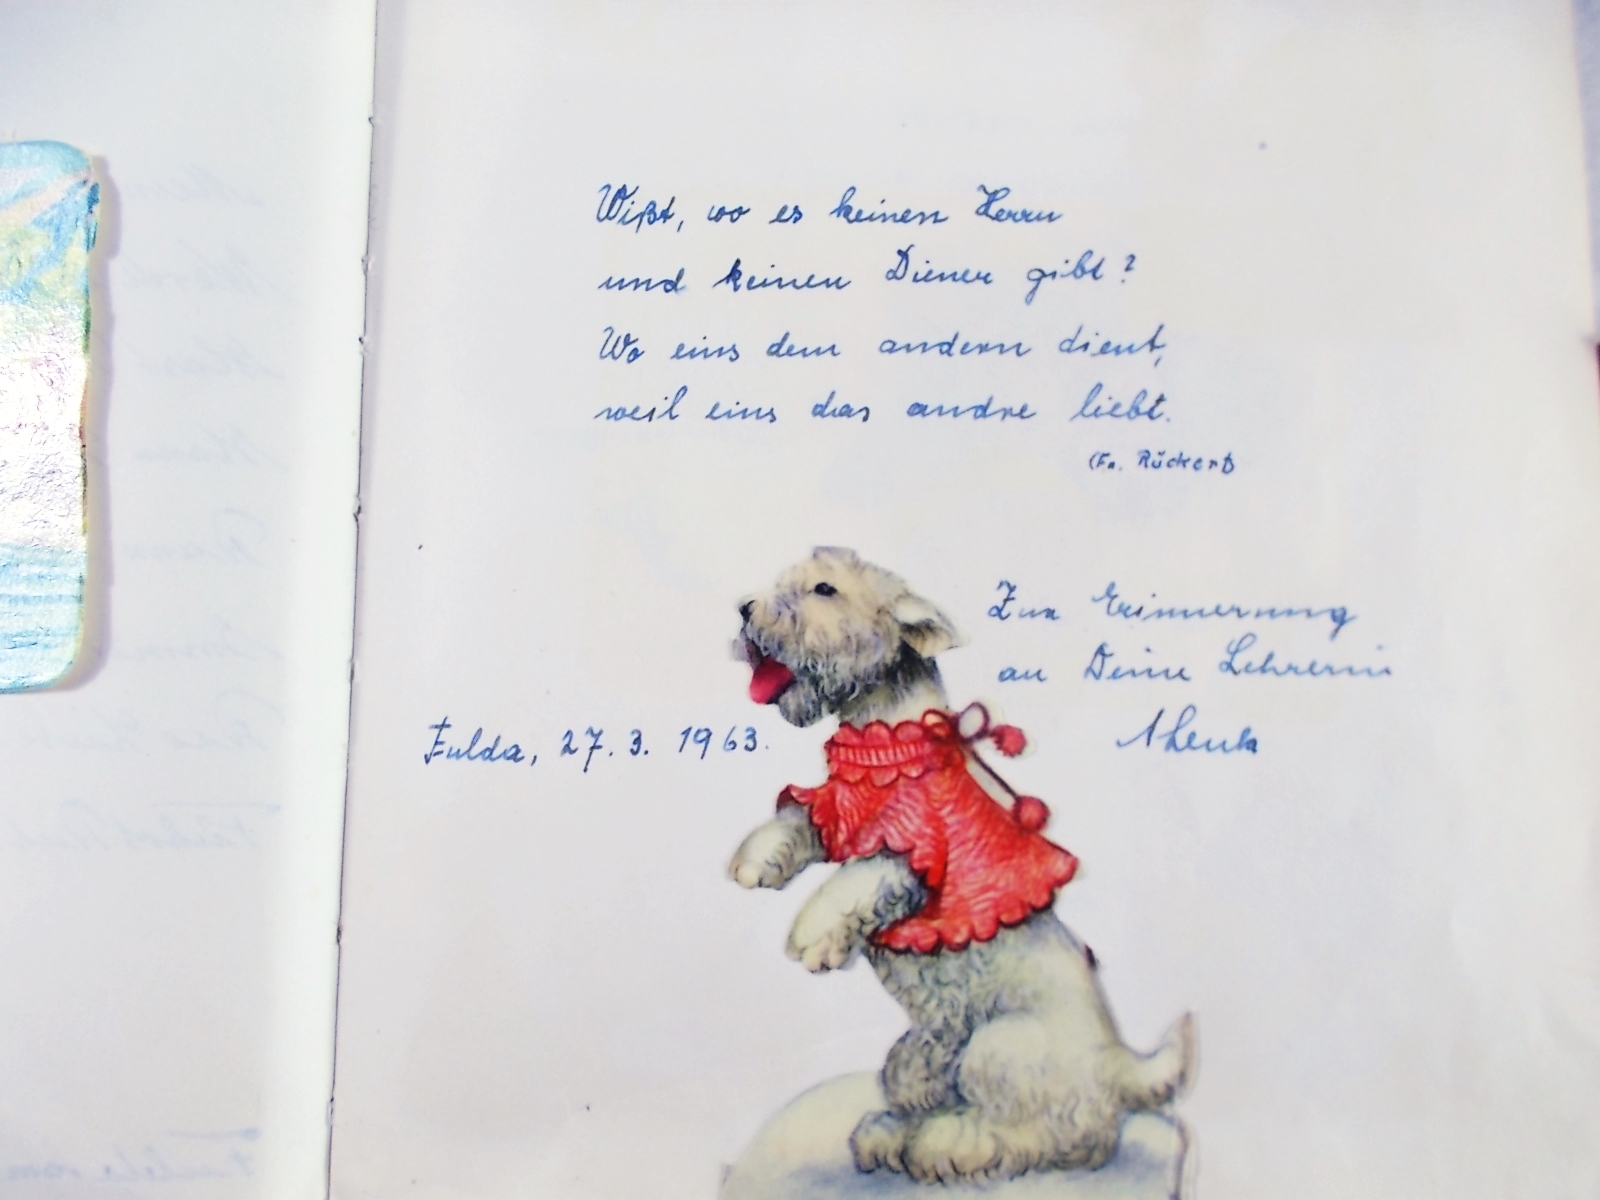 Wißt, wo es keinen Herrn
und keinen Diener gibt?
Wo eins dem andern dient,
weil eins das andre liebt.
(Fr. Rückert)
Zur Erinnerung
an Deine Lehrerin
Fulda, 27. 3. 1963.